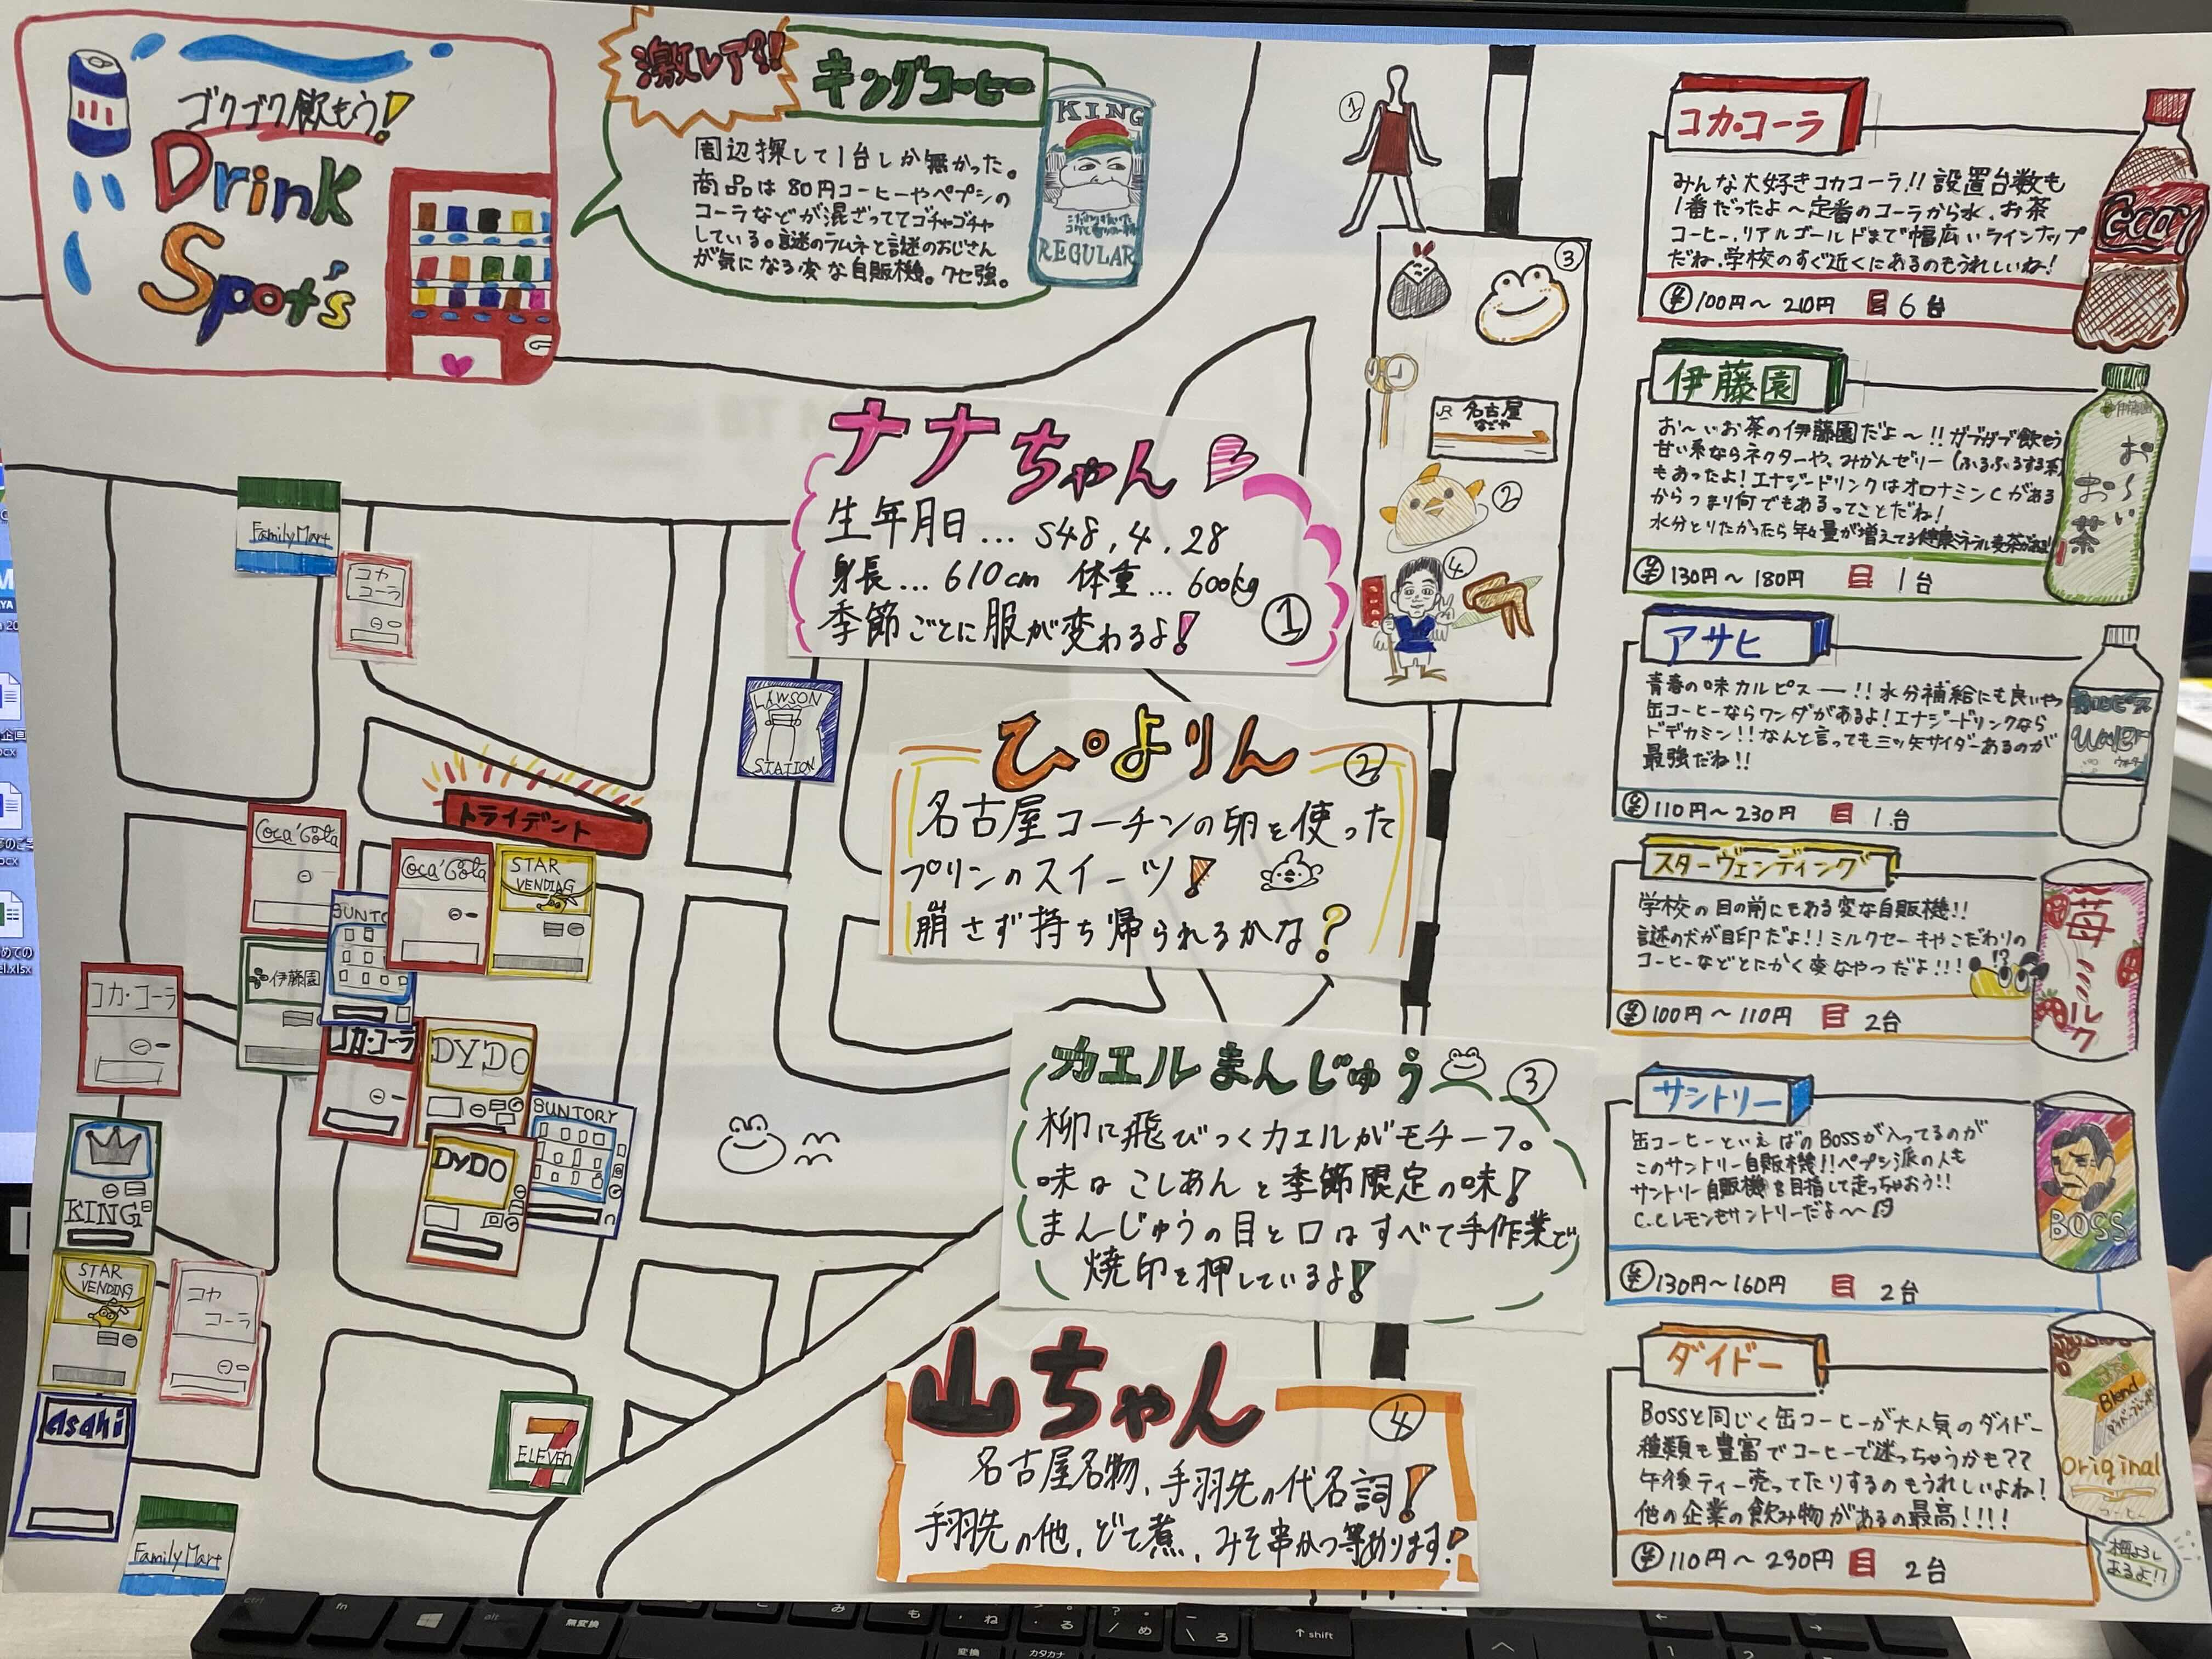 ゴクゴク飲もう!
Drink
Spot's
激レア?!!
キングコーヒー
周辺探して1台しか無かった。
商品は80円コーヒーやペプシの
コーラなどが混ざっててゴチャゴチャ
している。謎のラムネと謎のおじさん
が気になる変な自販機。クセ強。
KING
REGULAR
①
③
JR 名古屋
なごや
②
④
ナナちゃん
生年月日... S48.4.28
身長... 610cm 体重... 600kg
季節ごとに服が変わるよ!
①
ぴよりん
②
名古屋コーチンの卵を使った
プリンのスイーツ!
崩さず持ち帰られるかな?
カエルまんじゅう
③
柳に飛びつくカエルがモチーフ。
味はこしあんと季節限定の味!
まんじゅうの目と口はすべて手作業で
焼印を押しているよ!
山ちゃん
④
名古屋名物、手羽先の代名詞!
手羽先の他、どて煮、みそ串かつ等あります!
FamilyMart
コカ
コーラ
LAWSON
STATION
トライデント
Coca Cola
Coca Cola
STAR
VENDING
SUNTO
伊藤園
コカ・コーラ
コカ・コーラ
DYDO
DYDO
SUNTORY
KING
STAR
VENDING
コカ
コーラ
Asahi
7
ELEVEn
FamilyMart
コカ・コーラ
みんな大好きコカコーラ!! 設置台数も
1番だったよ〜定番のコーラから水、お茶
コーヒー、リアルゴールドまで幅広いラインナップ
だね、学校のすぐ近くにあるのもうれしいね!
¥100円〜210円 6台
Coca
伊藤園
お〜いお茶の伊藤園だよ〜!! ガブガブ飲もう
甘い系ならネクターや、みかんゼリー(ふるふるする系)
もあったよ! エナジードリンクはオロナミンCがある
からつまり何でもあるってことだね!
水分とりたかったら年々量が増えてる健康ミネラル麦茶が
¥130円〜180円 1台
伊藤園
お〜い
お茶
アサヒ
青春の味カルピスー!! 水分補給にも良いやつ
缶コーヒーならワンダがあるよ! エナジードリンクなら
ドデカミン!! なんと言っても三ッ矢サイダーあるのが
最強だね!!
¥110円〜230円 1台
カルピス
ウォーター
スターヴェンディング
学校の目の前にもある変な自販機!!
謎の犬が目印だよ!! ミルクセーキやこだわりの
コーヒーなどとにかく変なやつだよ!!!
!?
¥100円〜110円 2台
苺ミルク
サントリー
缶コーヒーといえばのBossが入ってるのが
このサントリー自販機!! ペプシ派の人も
サントリー自販機を目指して走っちゃおう!!
C.Cレモンもサントリーだよ〜〜
¥130円〜160円 2台
BOSS
ダイドー
BOSSと同じく缶コーヒーが大人気のダイドー
種類も豊富でコーヒーで迷っちゃうかも??
午後ティー売ってたりするのもうれしいよね!
他の企業の飲み物があるの最高!!!!
¥110円〜230円 2台
Blend
Original
コーヒー
梅よろし
あるよ!!